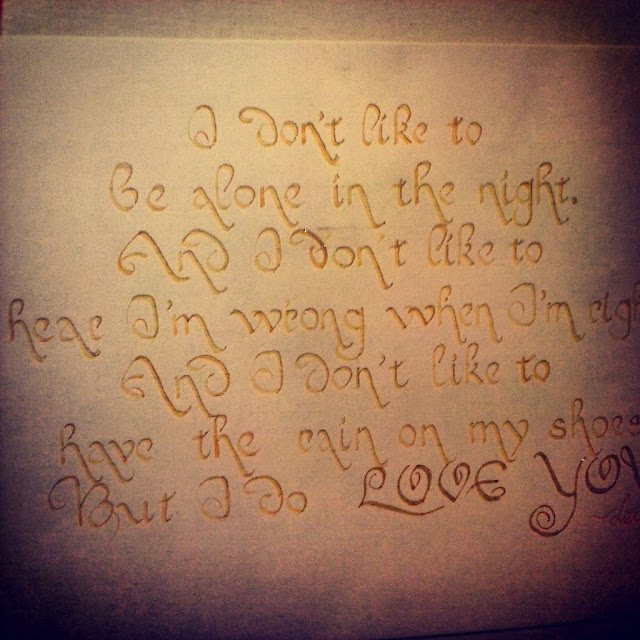 I don't like to
be alone in the night.
And I don't like to
hear I'm wrong when I'm righ
And I don't like to
have the rain on my shoes
But I do LOVE YOU